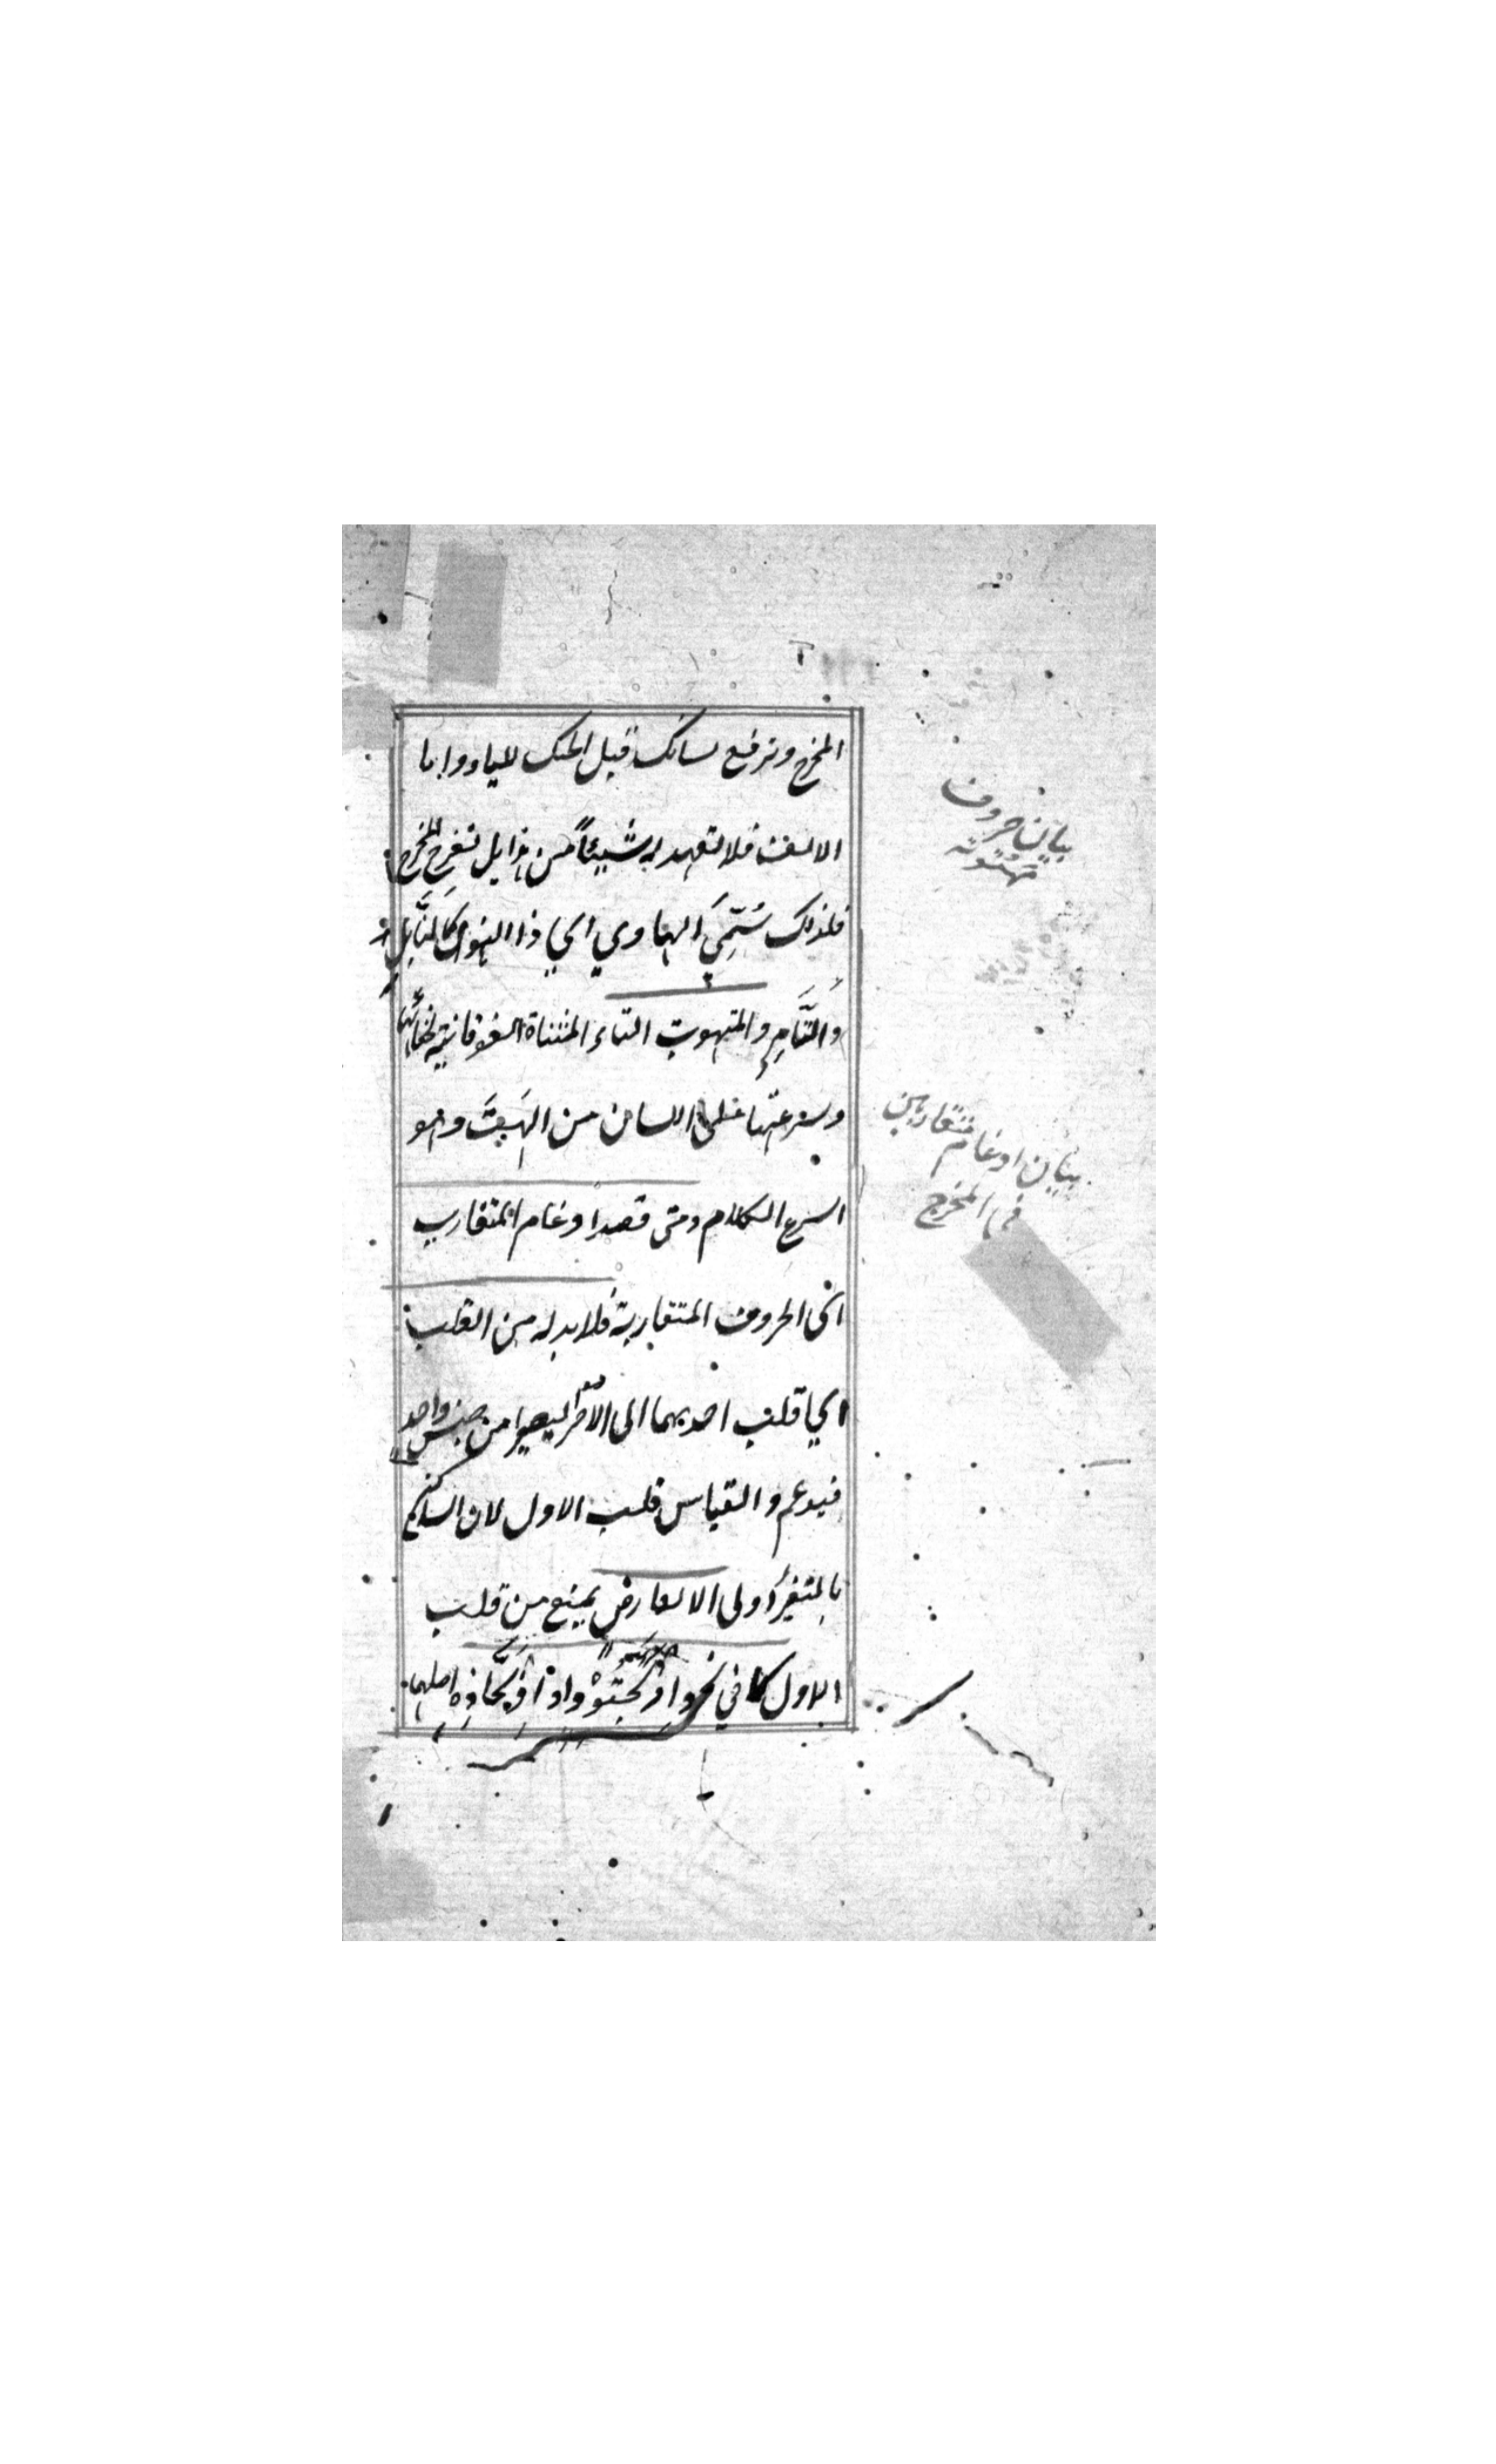 المخرج وترفع لسانك قبل الحنك للياء واما
الالف فلا تعهد له شيئاً من هذا بل تفرج المخرج
فلذلك سُمِّيَ الهاوي اي ذا الهواء كَالنَّابِلِ
والتَّامِرِ والمتهوت التاء المثناة الفوقانية لخفائها
وسرعتها على اللسان من الهَبتَ وهو
اسرع الكلام ومتى قصد ادغام المتقارب
اى الحروف المتقاربة فلا بد له من القلب
اي قلب احديهما الى الآخر ليصيرا من جنس واحد
فيدغم والقياس قلب الاول لان الساكن
بالتغير أولى الا لعارض يمنع من قلب
الاول كما في نحو اذْبَحَّتُوْدًا واذْبَحَّاذِهِ اصلهما
بيان حروف
مهتوتة
بيان ادغام متقاربين
في المخرج